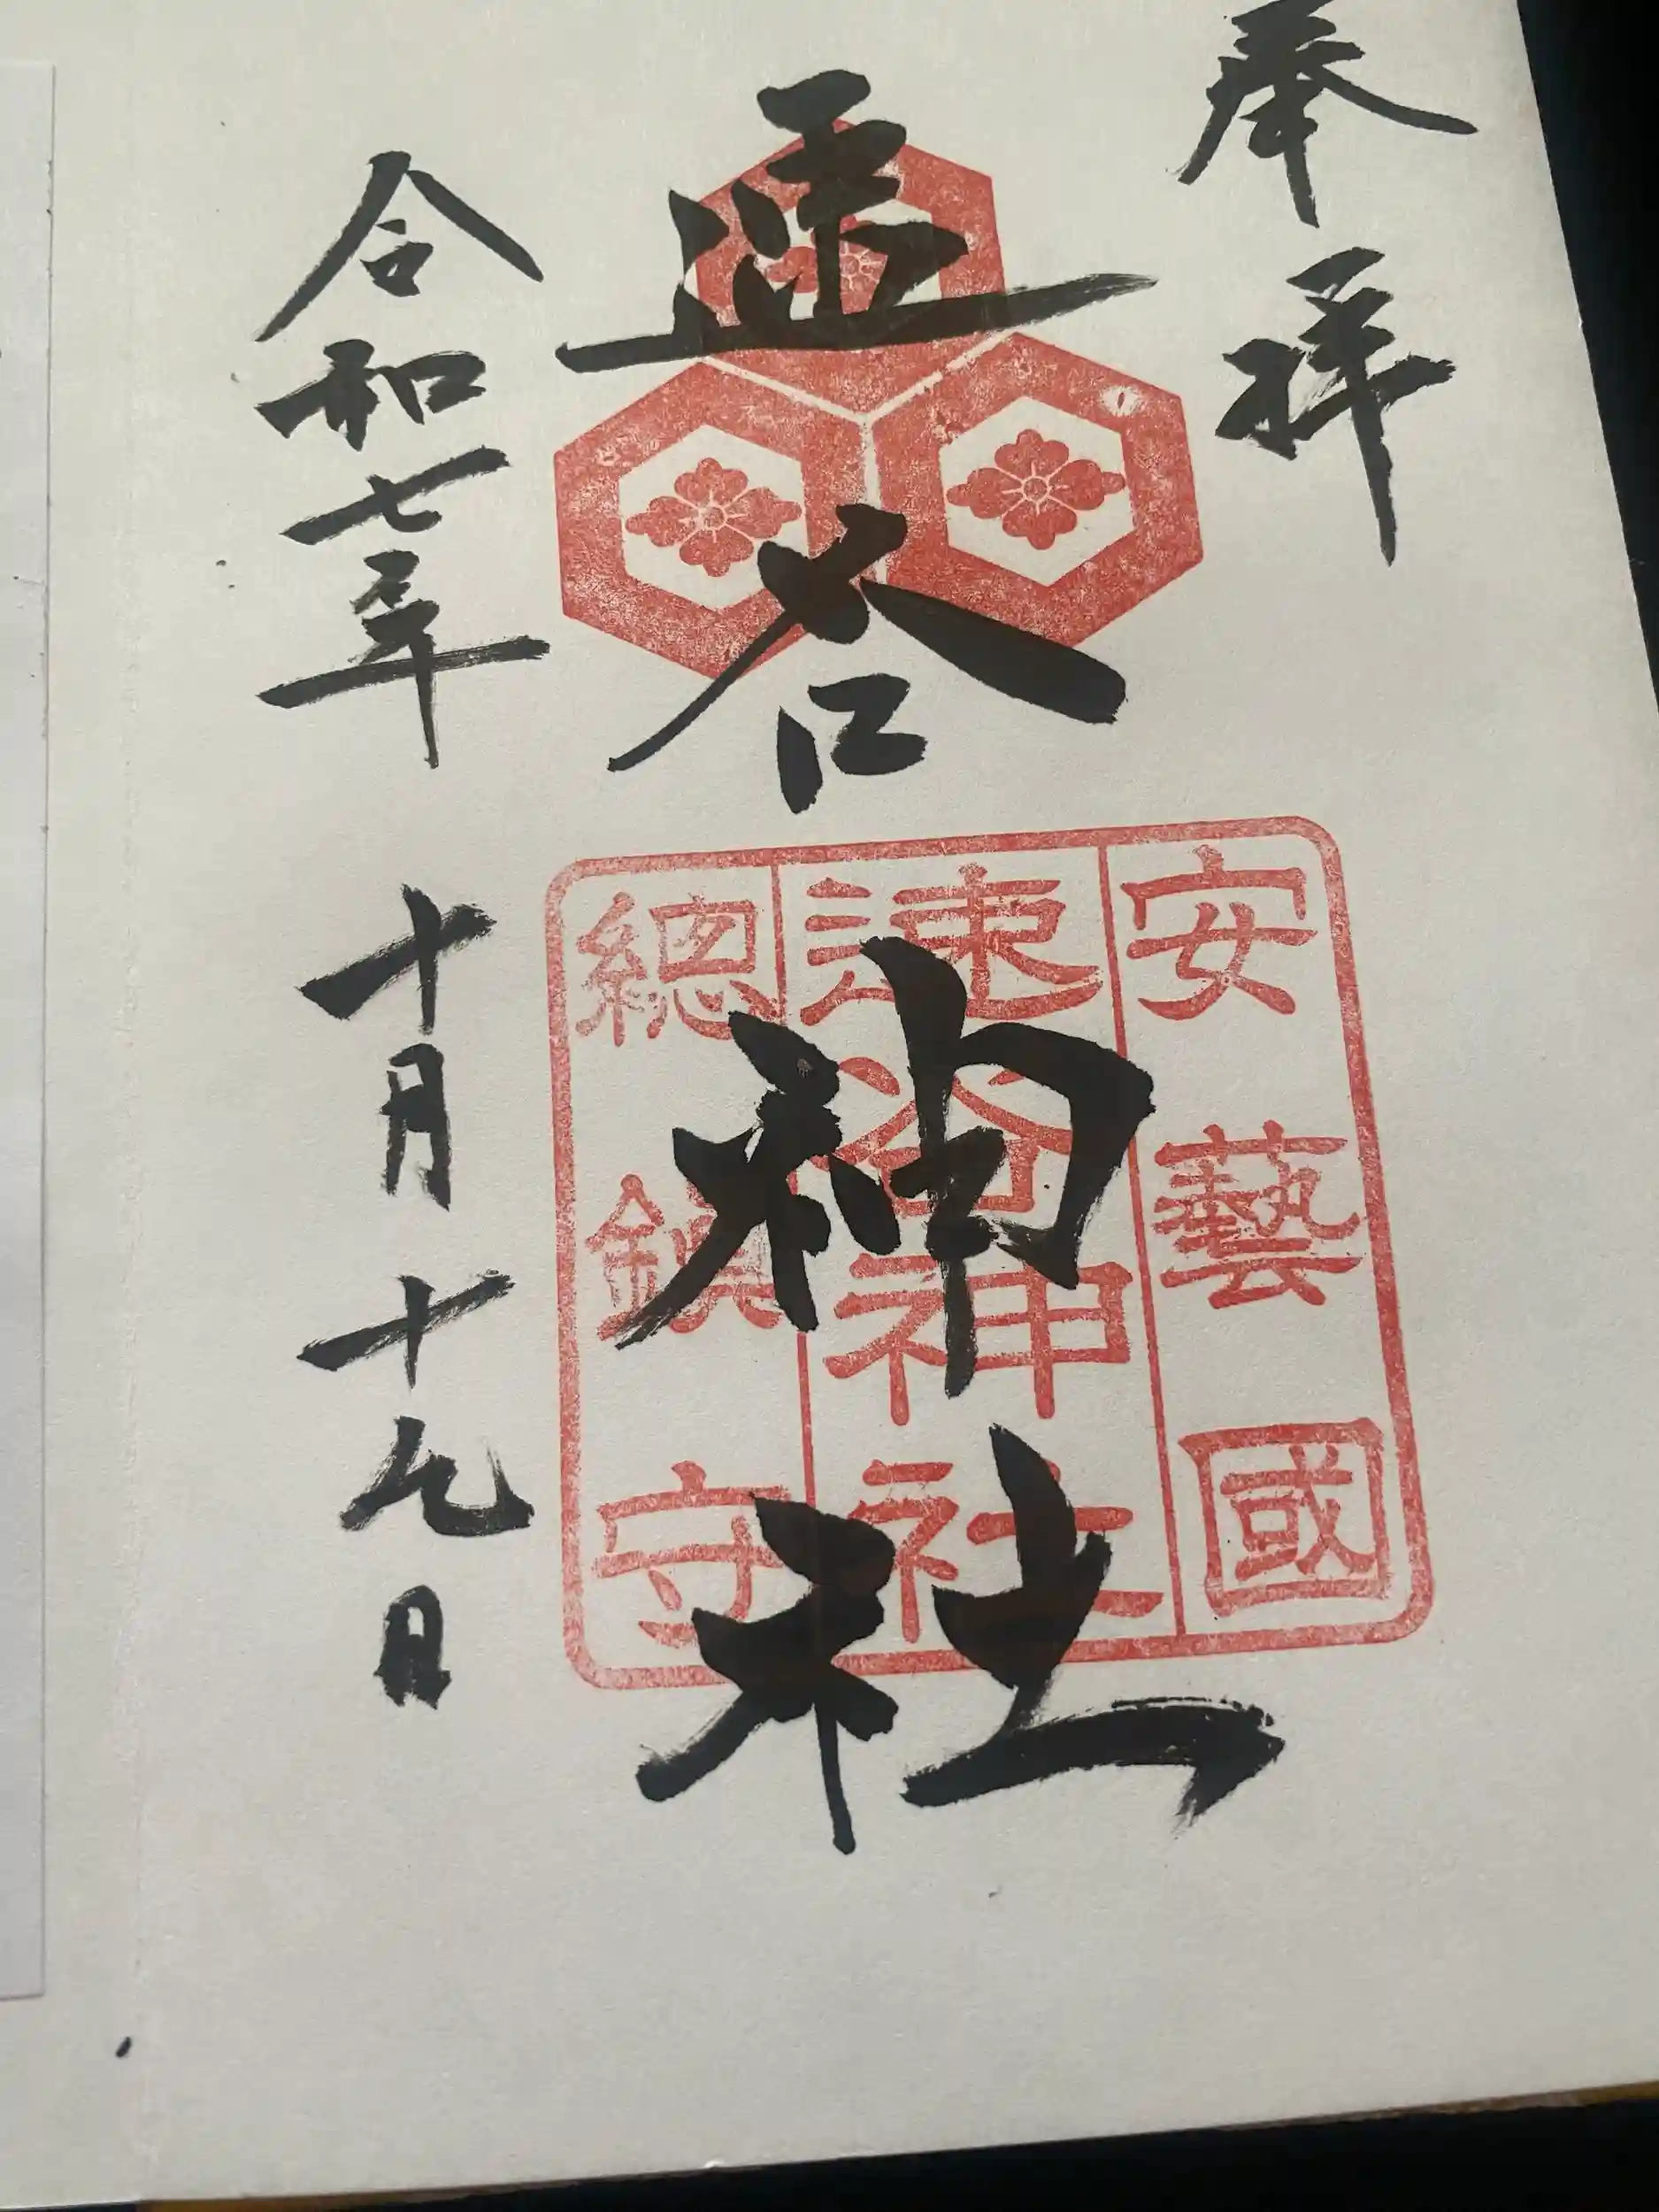 奉拝
速谷神社
安藝國
速谷神社
總鎮守
令和七年十月十九日